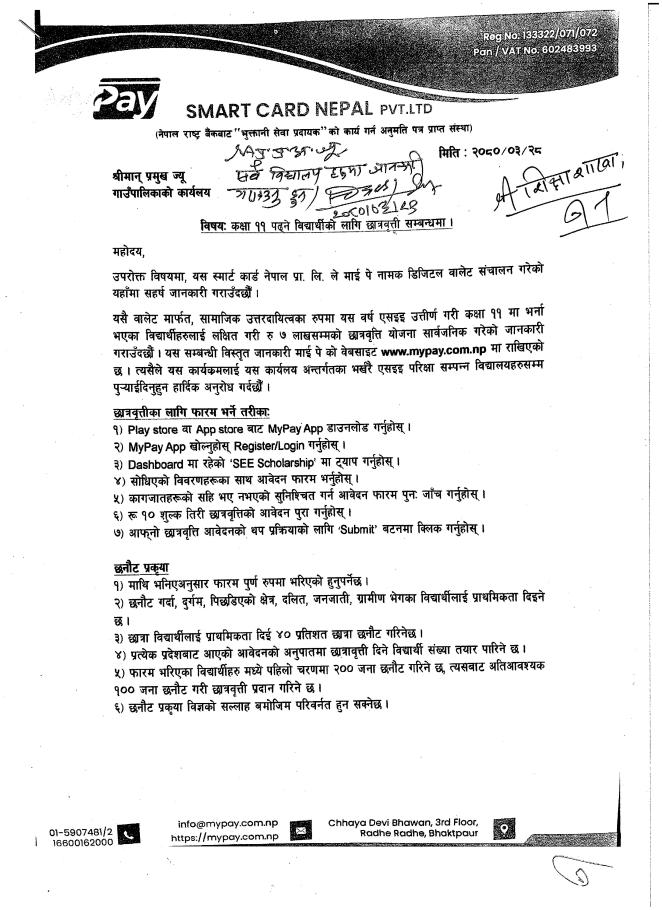 Reg No: 133322/071/072
Pan / VAT No. 602483993
Pay
SMART CARD NEPAL PVT.LTD
(नेपाल राष्ट्र बैंकबाट "भुक्तानी सेवा प्रदायक" को कार्य गर्न अनुमति पत्र प्राप्त संस्था)
मिति : २०८०/०३/२८
श्रीमान् प्रमुख ज्यू
गाउँपालिकाको कार्यलय
सबै विद्यालय
श्री शिक्षा शाखा,
२०८०/०३/२९
विषय: कक्षा ११ पढ्ने विद्यार्थीको लागि छात्रवृत्ती सम्बन्धमा ।
महोदय,
उपरोक्त विषयमा, यस स्मार्ट कार्ड नेपाल प्रा. लि. ले माई पे नामक डिजिटल वालेट संचालन गरेको
यहाँमा सहर्ष जानकारी गराउँदछौं ।
यसै वालेट मार्फत, सामाजिक उत्तरदायित्वका रुपमा यस वर्ष एसइइ उत्तीर्ण गरी कक्षा ११ मा भर्ना
भएका विद्यार्थीहरुलाई लक्षित गरी रु ७ लाखसम्मको छात्रवृति योजना सार्वजनिक गरेको जानकारी
गराउँदछौं । यस सम्बन्धी विस्तृत जानकारी माई पे को वेबसाइट www.mypay.com.np मा राखिएको
छ । त्यसैले यस कार्यक्रमलाई यस कार्यालय अन्तर्गतका भर्खरै एसइइ परिक्षा सम्पन्न विद्यालयहरुसम्म
पुर्‍याईदिनुहुन हार्दिक अनुरोध गर्दछौं ।
छात्रवृत्तीका लागि फारम भर्ने तरीका:
१) Play store वा App store बाट MyPay App डाउनलोड गर्नुहोस् ।
२) MyPay App खोल्नुहोस् Register/Login गर्नुहोस् ।
३) Dashboard मा रहेको ‘SEE Scholarship’ मा ट्याप गर्नुहोस् ।
४) सोधिएको विवरणहरूका साथ आवेदन फारम भर्नुहोस् ।
५) कागजातहरूको सहि भए नभएको सुनिश्चित गर्न आवेदन फारम पुन: जाँच गर्नुहोस् ।
६) रू १० शुल्क तिरी छात्रवृत्तिको आवेदन पुरा गर्नुहोस् ।
७) आफ्नो छात्रवृत्ति आवेदनको थप प्रक्रियाको लागि ‘Submit’ बटनमा क्लिक गर्नुहोस् ।
छनौट प्रकृया
१) माथि भनिएअनुसार फारम पुर्ण रुपमा भरिएको हुनुपर्नेछ ।
२) छनौट गर्दा, दुर्गम, पिछडिएको क्षेत्र, दलित, जनजाती, ग्रामीण भेगका विद्यार्थीलाई प्राथमिकता दिइने
छ ।
३) छात्रा विद्यार्थीलाई प्राथमिकता दिई ४० प्रतिशत छात्रा छनौट गरिनेछ ।
४) प्रत्येक प्रदेशबाट आएको आवेदनको अनुपातमा छात्रावृत्ती दिने विद्यार्थी संख्या तयार पारिने छ ।
५) फारम भरिएका विद्यार्थीहरु मध्ये पहिलो चरणमा २०० जना छनौट गरिने छ, त्यसबाट अतिआवश्यक
१०० जना छनौट गरी छात्रवृत्ती प्रदान गरिने छ ।
६) छनौट प्रकृया विज्ञको सल्लाह बमोजिम परिवर्नत हुन सक्नेछ ।
01-5907481/2
16600162000
info@mypay.com.np
https://mypay.com.np
Chhaya Devi Bhawan, 3rd Floor,
Radhe Radhe, Bhaktpaur